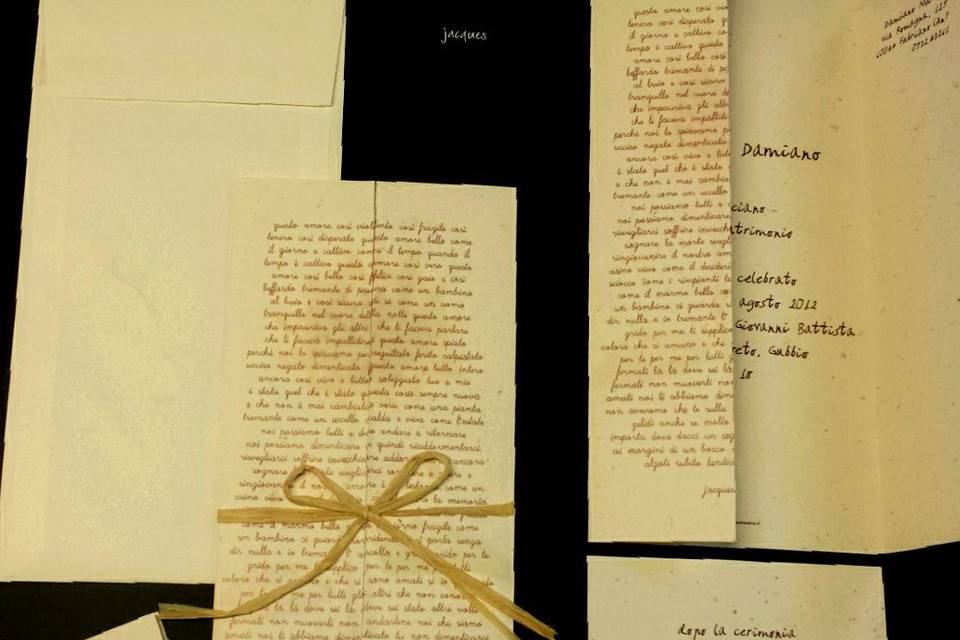 jacques
questo amore così violento così fragile così
tenero così disperato questo amore bello come
il giorno e cattivo come il tempo quando il
tempo è cattivo questo amore così vero questo
amore così bello così felice così gaio e così
beffardo tremante di paura come un bambino
al buio e così sicuro di sé come un uomo
tranquillo nel cuore della notte questo amore
che impauriva gli altri che li faceva parlare
che li faceva impallidire questo amore spiato
perché noi lo spiavamo perseguitato ferito calpestato
ucciso negato dimenticato questo amore tutto intero
ancora così vivo e tutto soleggiato tuo e mio
è stato quel che è stato questa cosa sempre nuova
e che non è mai cambiata vera come una pianta
tremante come un uccello calda e viva come l'estate
noi possiamo tutti e due andare e ritornare
noi possiamo dimenticare e quindi riaddormentarci
risvegliarci soffrire invecchiare addormentarci ancora
sognare
ringiovanire il nostro
asino vivo la memoria
come il marmo bello giorno fragile come
un bambino ci guarda sorridendo ci parla senza
dir nulla e io tremante l'ascolto e grido per te
grido per me ti supplico per te per me
coloro che si amano e che si sono amati sì io
per te per me per tutti gli altri che non conosco
fermati là là dove sei là dove sei stato altre volte
fermati non muoverti non andartene noi che siamo
amati noi ti abbiamo dimenticato tu non dimenticarci
questo amore così vio
tenero così disperato q
il giorno e cattivo co
tempo è cattivo questo
amore così bello così
beffardo tremante di pa
al buio e così sicuro
tranquillo nel cuore de
che impauriva gli altr
che li faceva impallidi
perché noi lo spiavamo p
ucciso negato dimenticato
ancora così vivo e tut
è stato quel che è stato
e che non è mai cambia
tremante come un uccello
noi possiamo tutti e
noi possiamo dimenticare
risvegliarci soffrire invecch
sognare la morte svegli
ringiovanire il nostro am
asino vivo come il desideri
sciocco come i rimpianti te
come il marmo bello co
un bambino ci guarda s
dir nulla e io tremante l'
grido per me ti supplic
coloro che si amano e che
per te per me per tutti g
fermati là dove sei là
fermati non muoverti non
amati noi ti abbiamo dim
non avevamo che te sulla
gelidi anche se molto
importa dove dacci un seg
ai margini di un bosco
alzati subito tendic
jacques
Damiano
via Romagna, 125
Fabriano (An)
Damiano
ciano
trimonio
celebrato
agosto 2012
Giovanni Battista
reto, Gubbio
18
dopo la cerimonia